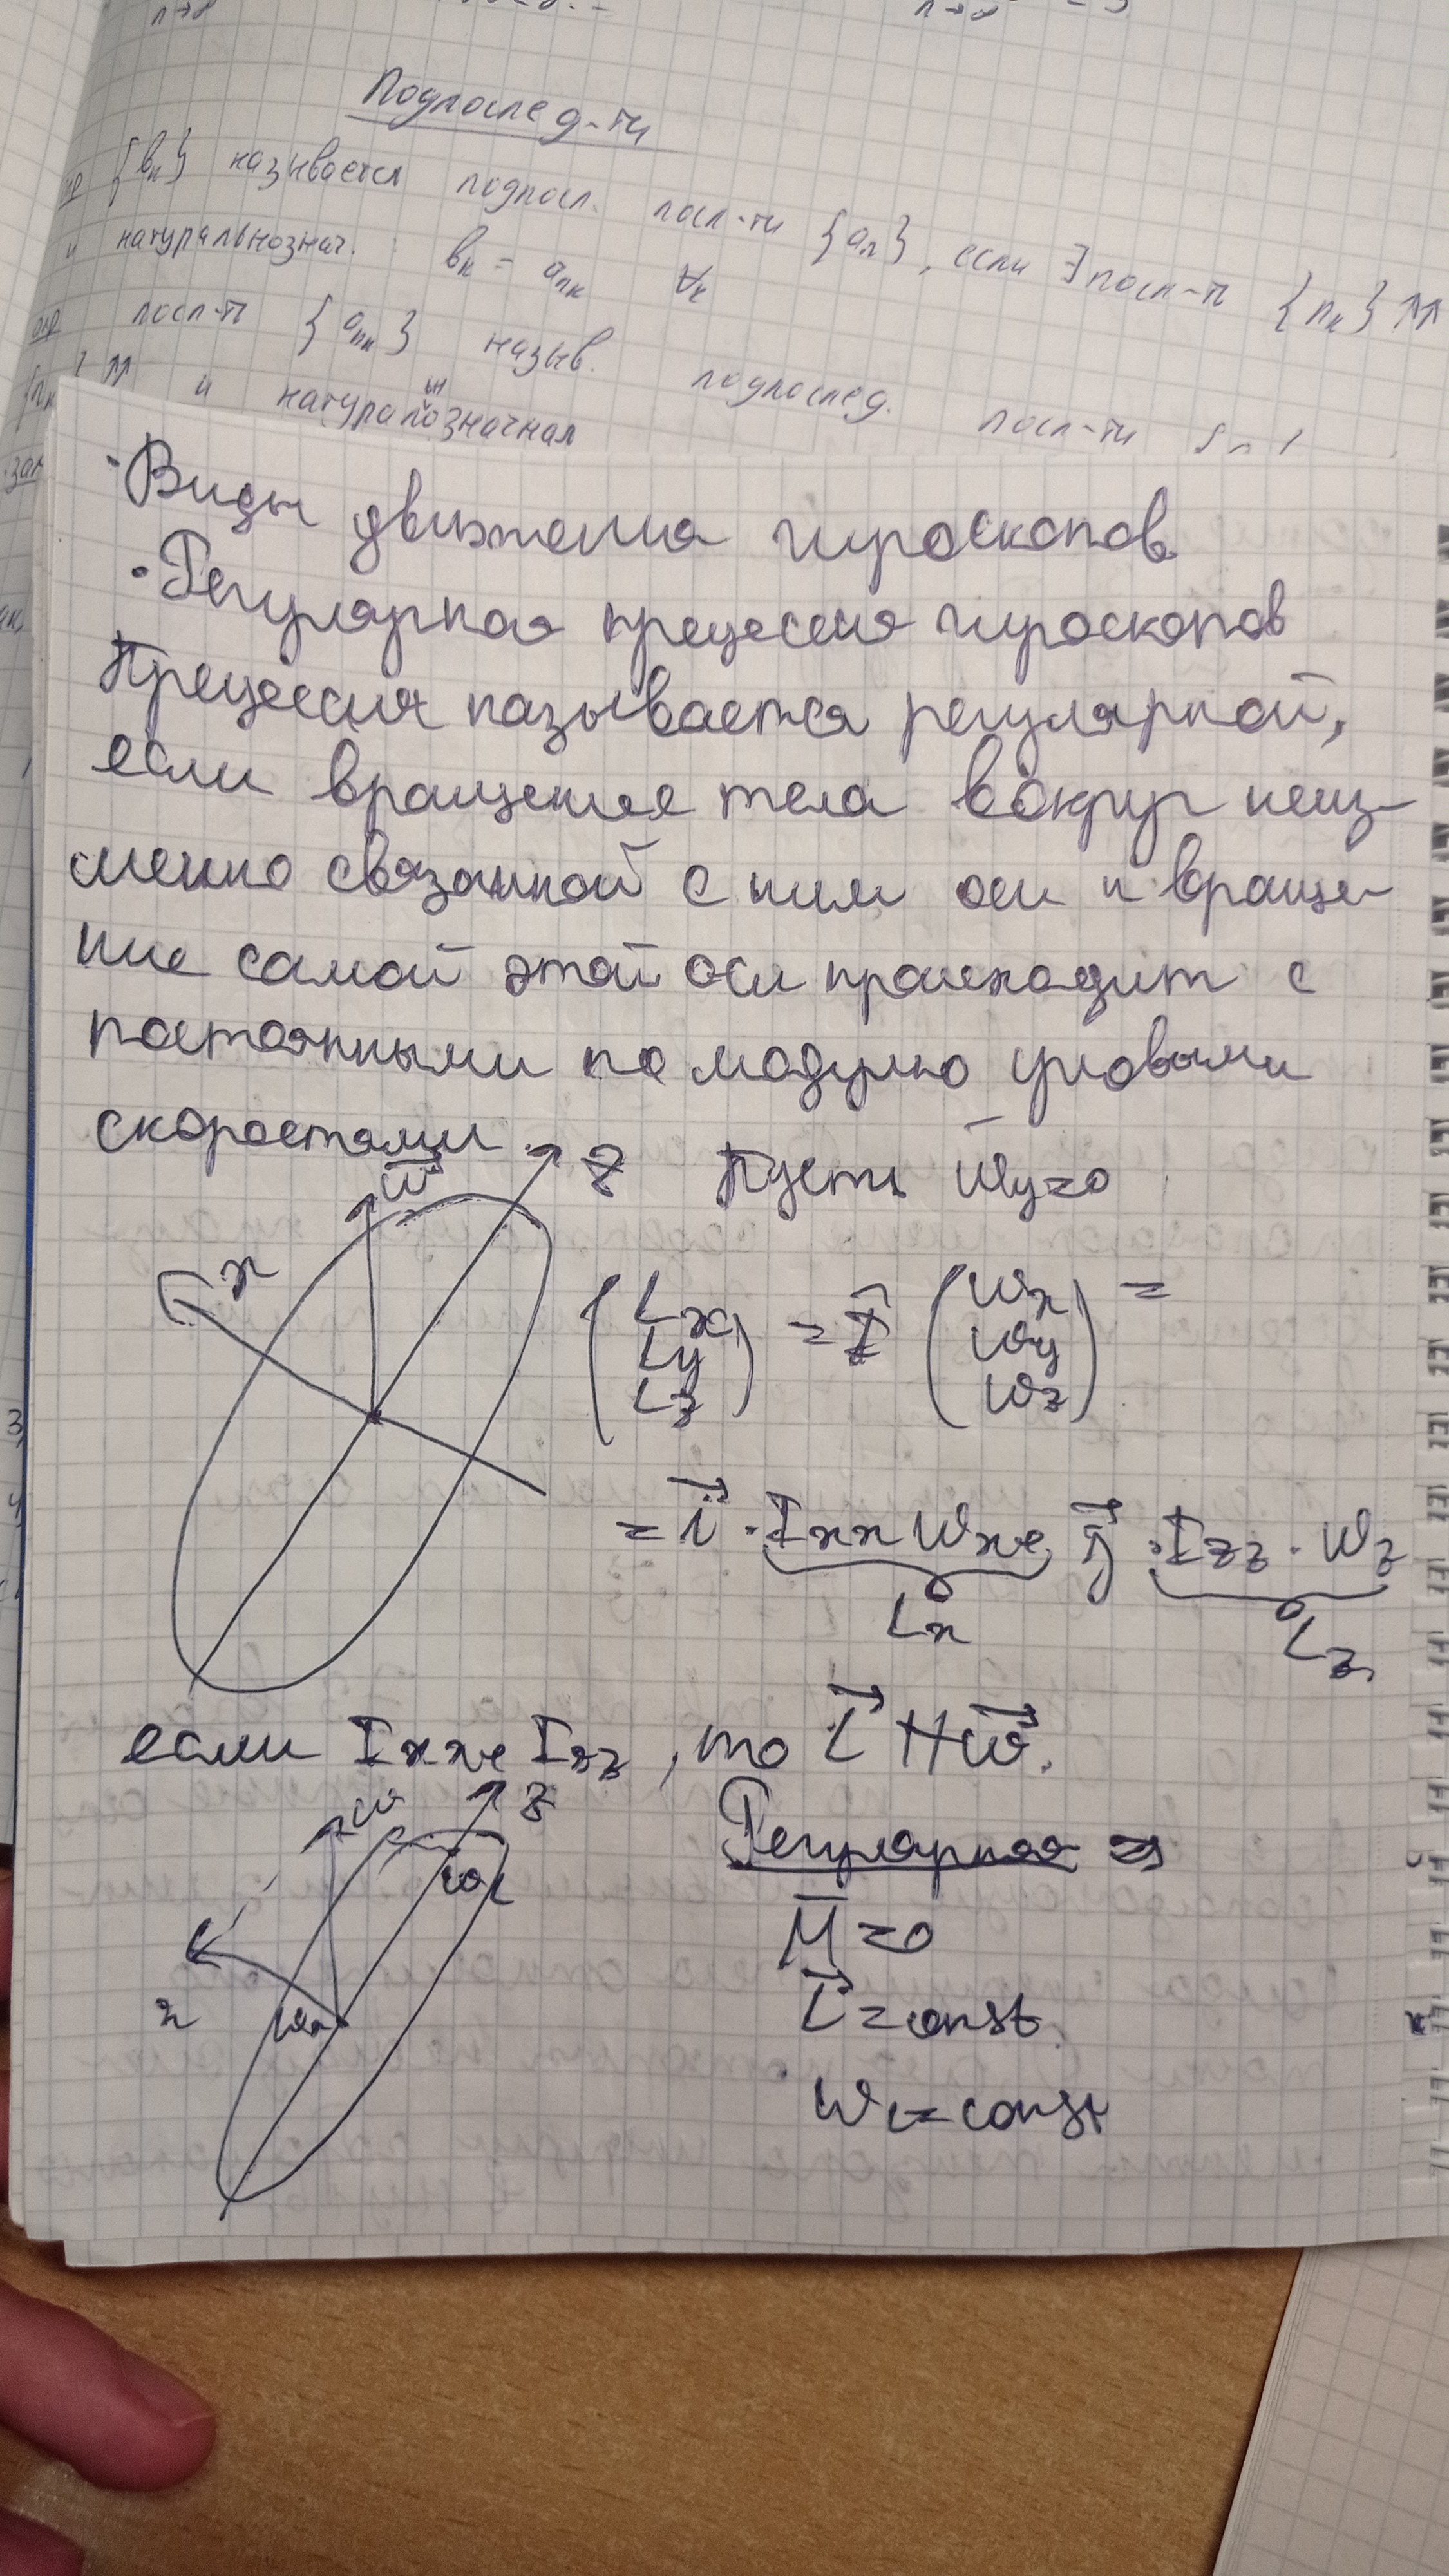 n→∞
n→∞
Подпослед-ти
{bₖ} называется подпосл. посл-ти {aₙ}, если ∃ посл-ть {nₖ} ↑↑
и натуральнознач. : bₖ = aₙₖ ∀ₖ
опр посл-ть {aₙₖ} назыв. подпослед. посл-ти
{nₖ} ↑↑ и натуральнозначная
· Виды движения гироскопов
· Регулярная прецессия гироскопов
Прецессия называется регулярной,
если вращение тела вокруг неиз-
менно связанной с ним оси и враще-
ние самой этой оси происходит с
постоянными по модулю угловыми
скоростями.
w⃗ z Пусть wy=0
x
(Lx Ly Lz) = Î (wx wy wz) =
= i⃗ · Ixx wx j⃗ · Izz · wz
Lx Lz
если Ixx Izz, то L⃗ ∦ w⃗.
w z
Регулярная ⇒
M̄ =0
L⃗ = const
x
w = const